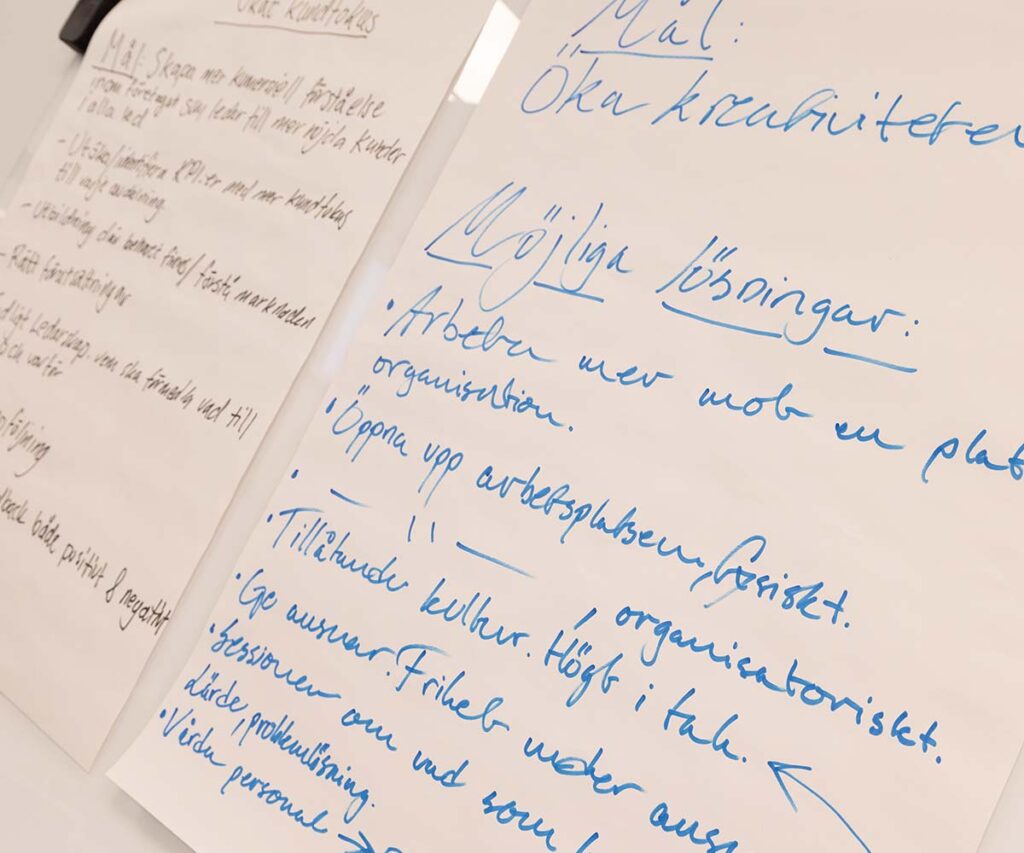 Ökat kundfokus
Mål: Skapa mer komersiell förståelse
inom företaget som leder till mer nöjda kunder
i alla led
- Utöka/identifiera KPI-er med mer kundfokus
till varje avdelning
- Utbildning där behovet finns/förstå marknaden
- Rätt förutsättningar
Ledarskap, vem ska förmedla vad till
och varför
både positivt & negativt
Mål:
Öka kreativiteten
Möjliga lösningar:
• Arbeta mer mot en plat
organisation.
• Öppna upp arbetsplatsen, fysiskt.
• — " — , organisatoriskt.
• Tillåtande kultur. Högt i tak.
• Ge ansvar. Frihet under ansv
• Sessioner om vad som
lärde, problemlösning.
• Vårda personal →